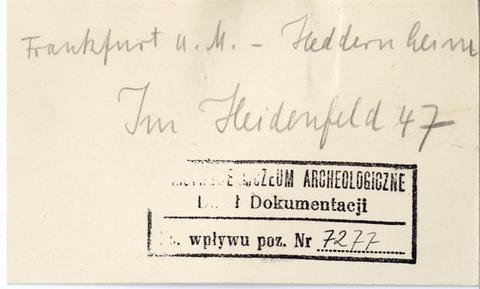 Frankfurt a. M. – Heddernheim
Im Heidenfeld 47
MUZEUM ARCHEOLOGICZNE
Dokumentacji
wpływu poz. Nr 7277